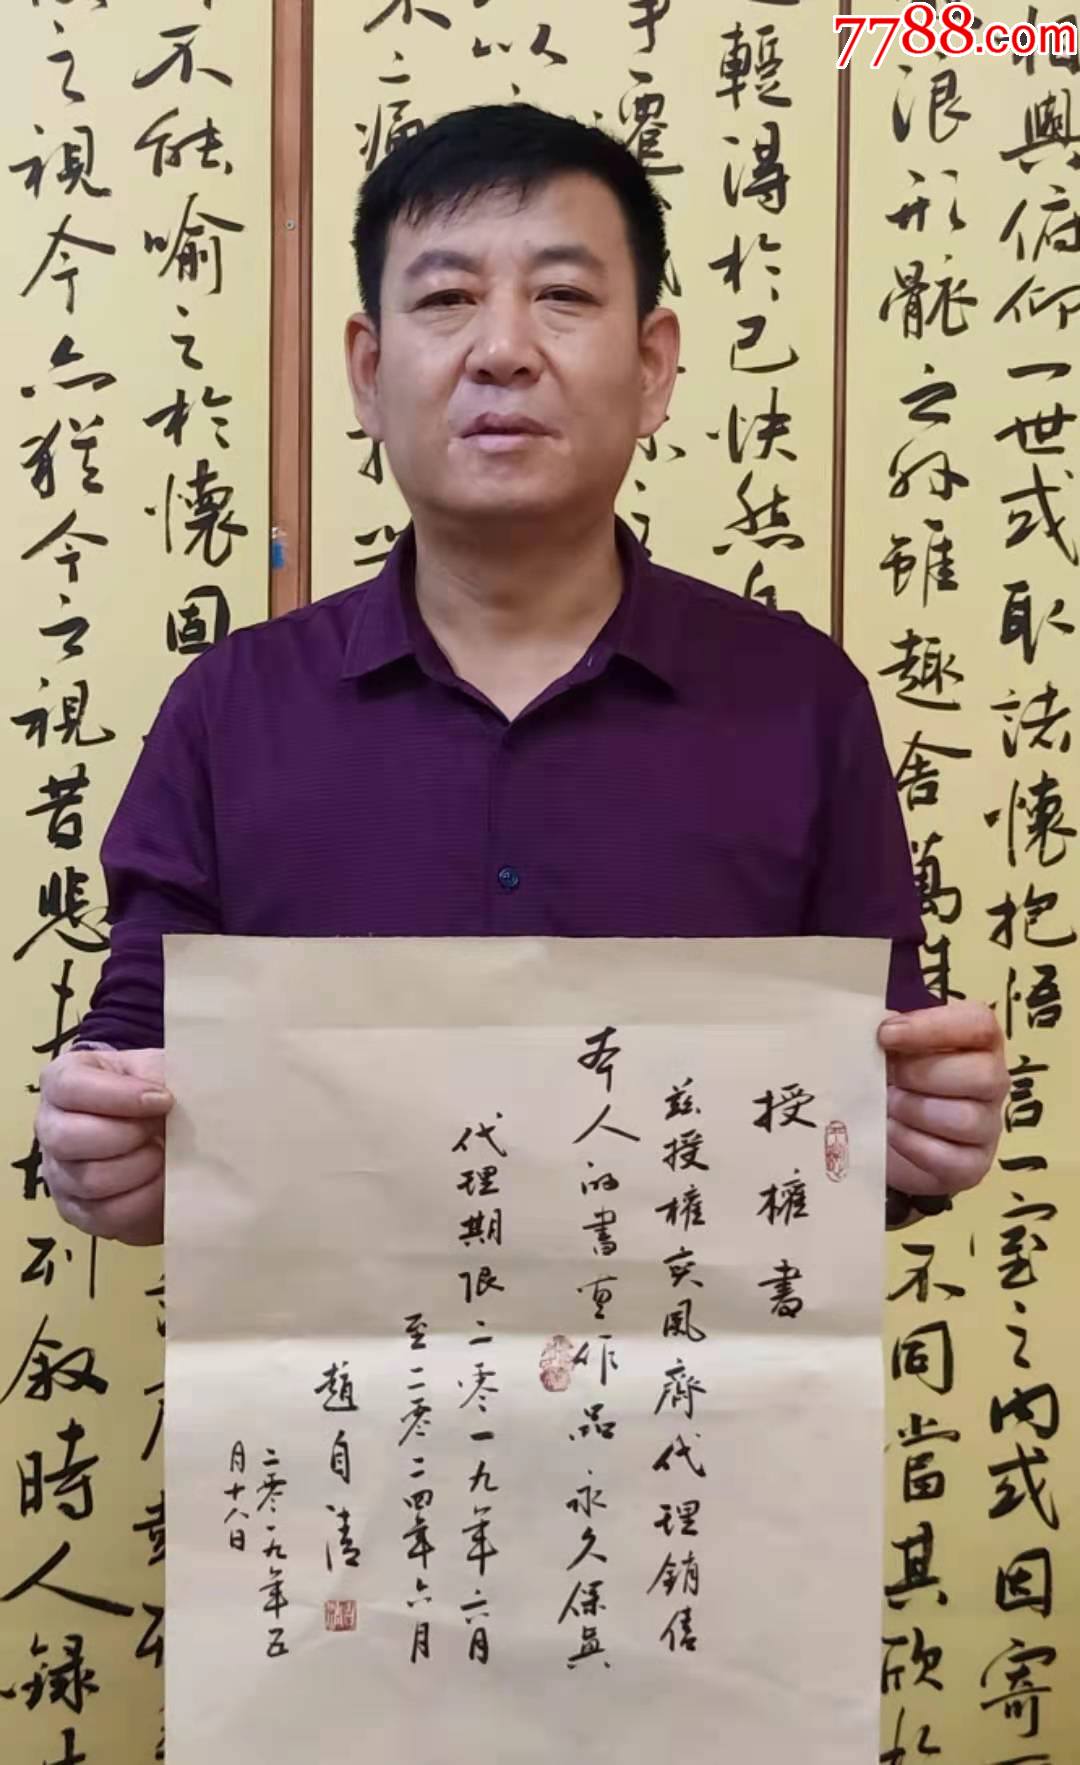 7788.com
相與俯仰一世或取諸懷抱悟言一室之內或因寄
浪形骸之外雖趣舍萬殊
不同當其欣於
輕得於己快然自
不能喻之於懷固
之視今亦猶今之視昔悲夫故列敘時人錄
授權書
茲授權奕風齋代理銷售
本人的書画作品永久保真
代理期限二零一九年六月
至二零二四年六月
趙自清
二零一九年五
月十八日